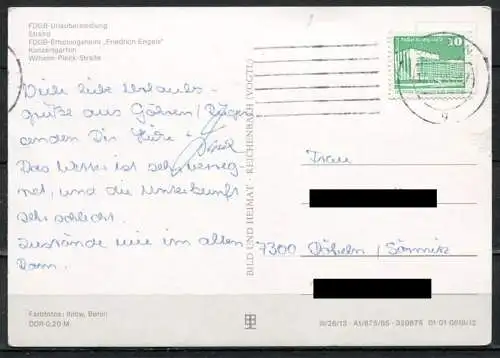 FDGB-Urlaubersiedlung
Strand
FDGB-Erholungsheim „Friedrich Engels"
Kurzengarten
Wilhelm-Pieck-Straße
Viele liebe Urlaubs-
grüße aus Göhren/Rügen
senden Dir
Das Wetter ist sehr vereg-
net, und die Unterkunft
sehr schlecht.
Zustände wie im alten
Rom.
BILD UND HEIMAT · REICHENBACH (VOGTL)
10
Frau
7300 Döbeln/Sörmitz
Farbfotos: Ihlow, Berlin
DDR 0,20 M
III/26/13 · A1/875/85 · 329875 01 01 0619/12